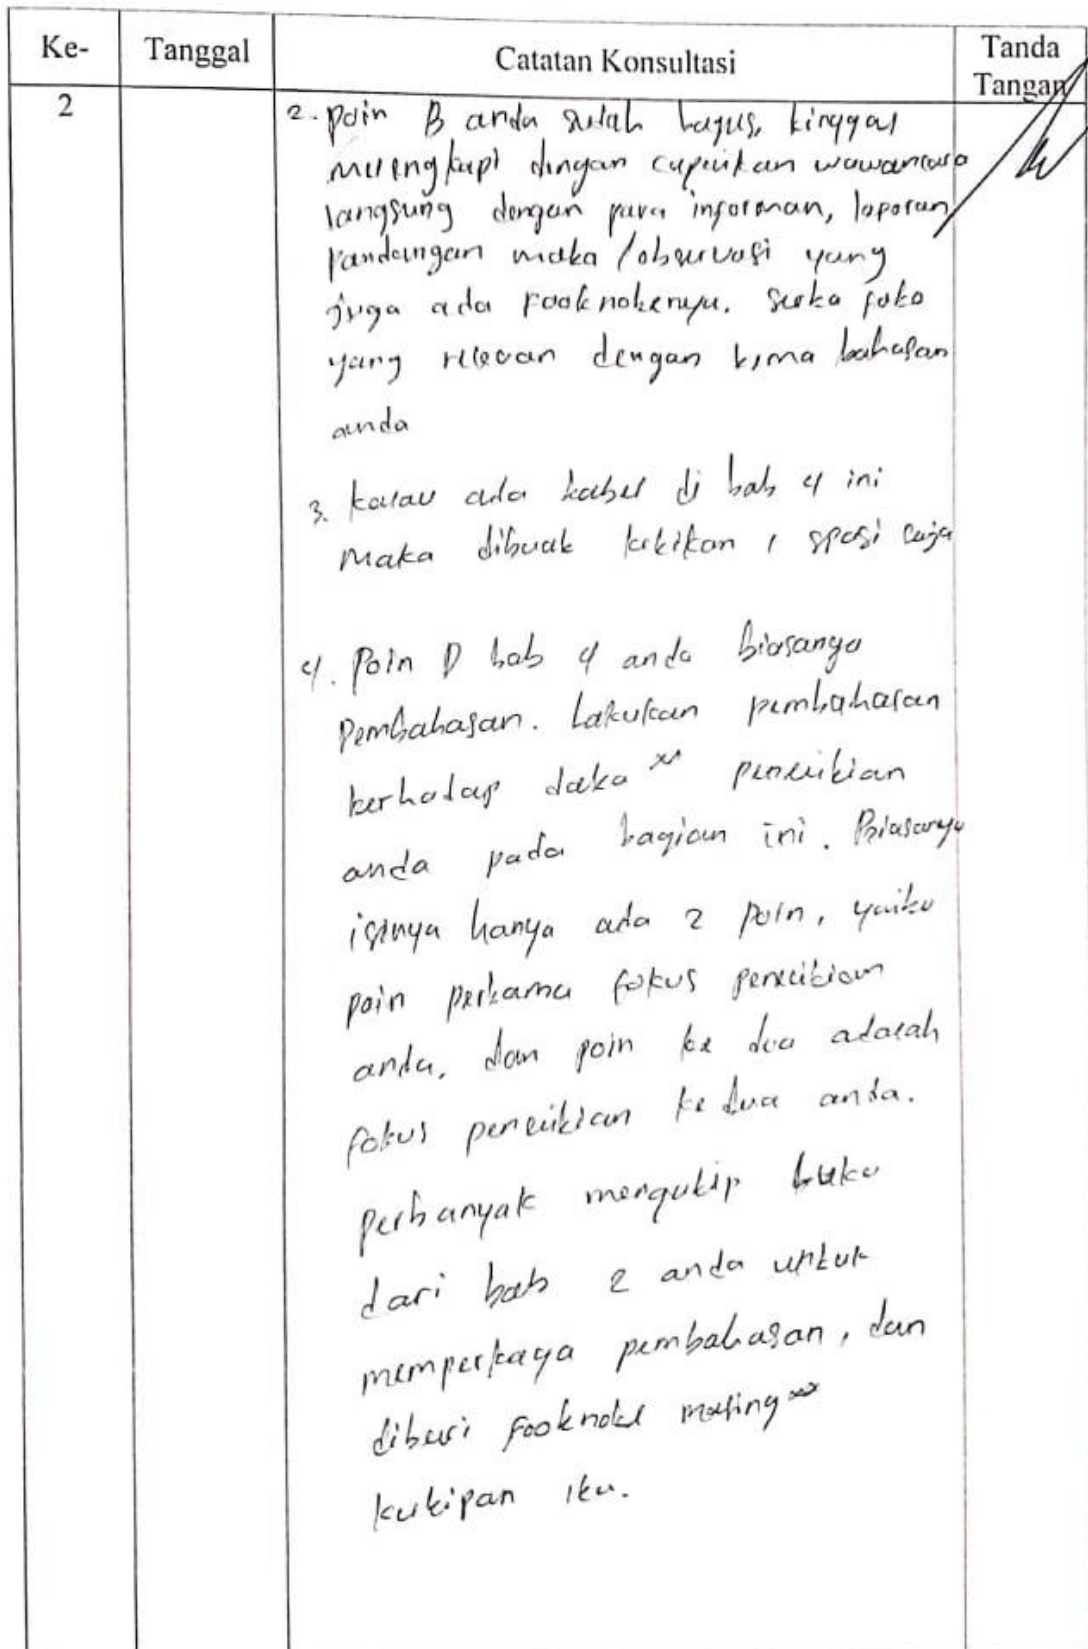 Ke-
Tanggal
Catatan Konsultasi
Tanda
Tangan
2
2. poin B anda sudah bagus, tinggal
melengkapi dengan cuplikan wawancara
langsung dengan para informan, laporan
pandangan mata / observasi yang
juga ada footnotenya. Serta foto
yang relevan dengan tema bahasan
anda
3. kalau ada tabel di bab 4 ini
maka dibuat ketikan 1 spasi saja
4. Poin D bab 4 anda biasanya
Pembahasan. Lakukan pembahasan
terhadap data penelitian
anda pada bagian ini. Biasanya
isinya hanya ada 2 poin, yaitu
poin pertama fokus penelitian
anda, dan poin ke dua adalah
fokus penelitian ke dua anda.
Perbanyak mengutip buku
dari bab 2 anda untuk
memperkaya pembahasan, dan
diberi footnote masing
kutipan itu.